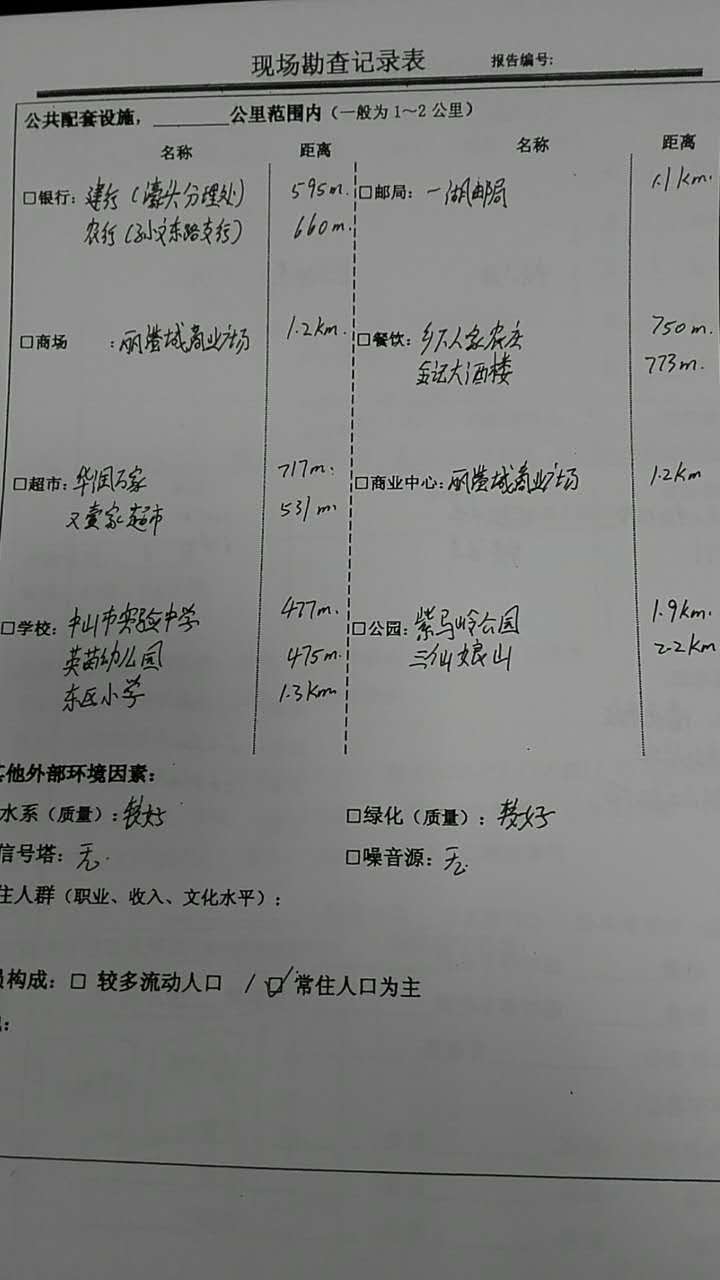 现场勘查记录表 报告编号:
公共配套设施，________公里范围内（一般为1～2公里）
名称 距离 名称 距离
□银行：建行（濠头分理处） 595m. □邮局：一湖邮局 1.1km.
农行（孙文东路支行） 660m.
□商场 ：丽莹城商业广场 1.2km. □餐饮：乡下人家农庄 750m.
金记大酒楼 773m.
□超市：华润万家 717m. □商业中心：丽莹城商业广场 1.2km
又壹家超市 531m.
□学校：中山市实验中学 477m. □公园：紫马岭公园 1.9km.
英苗幼儿园 475m. 三仙娘山 2.2km
东区小学 1.3km
其他外部环境因素：
水系（质量）：较好 □绿化（质量）：较好
信号塔：无. □噪音源：无.
住人群（职业、收入、文化水平）：
员构成：□ 较多流动人口 / ☑ 常住人口为主